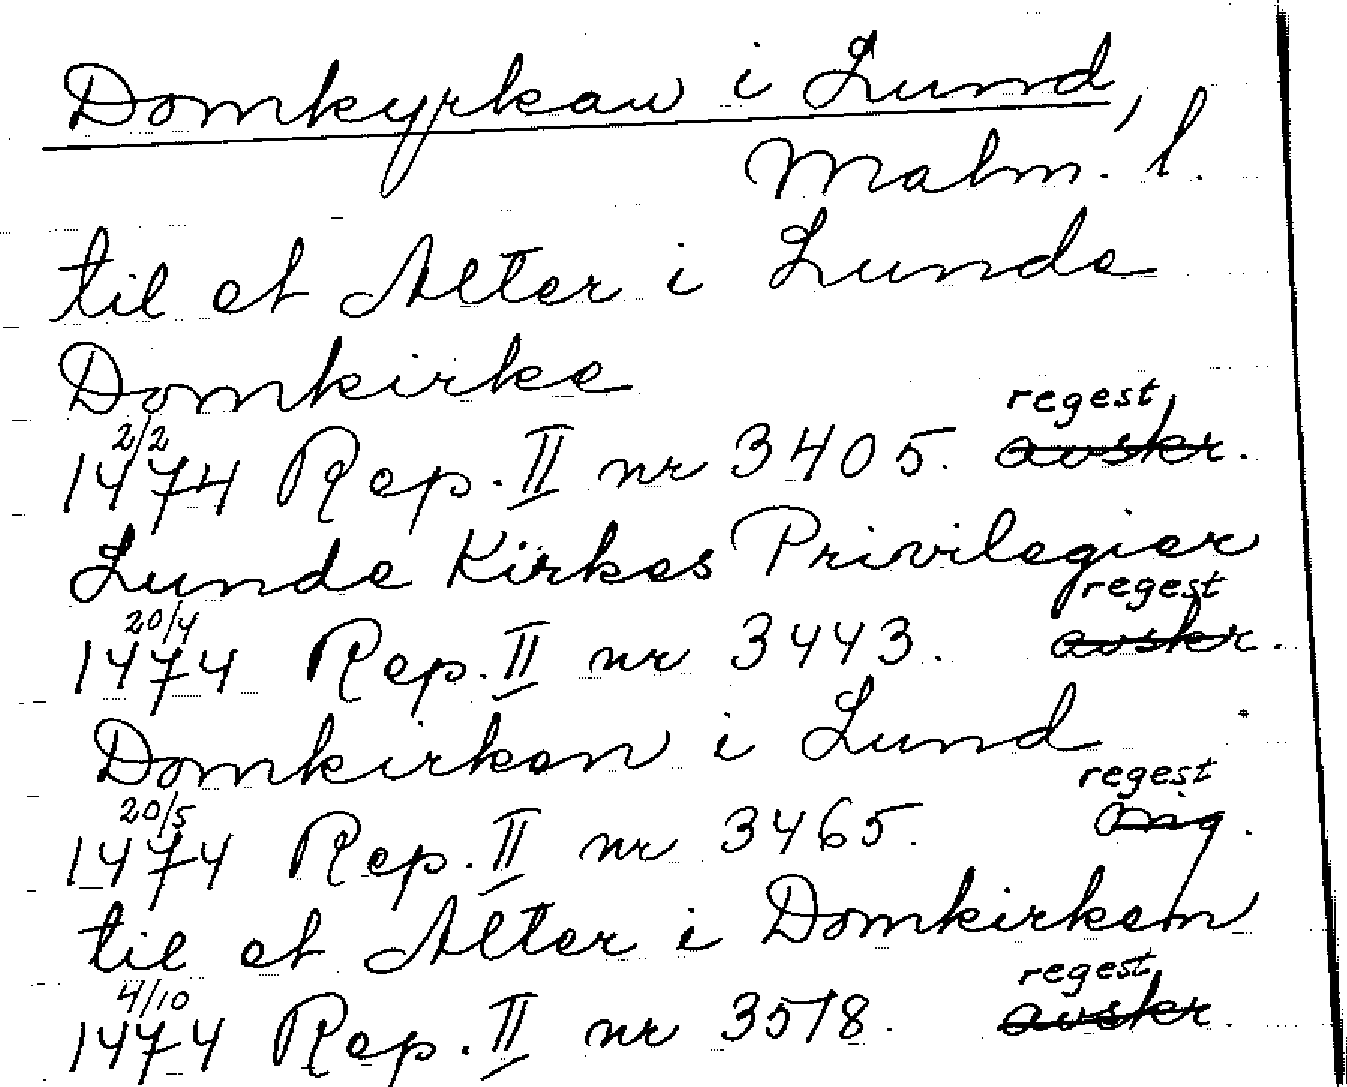 Domkyrkan i Lund,
Malm. l.
til et Alter i Lunde
Domkirke
regest
2/2
1474 Rep. II nr 3405. avskr.
Lunde Kirkes Privilegier
regest
20/4
1474 Rep. II nr 3443. avskr.
Domkirken i Lund
regest
20/5
1474 Rep. II nr 3465.
til et Alter i Domkirken
regest
4/10
1474 Rep. II nr 3518. avskr.